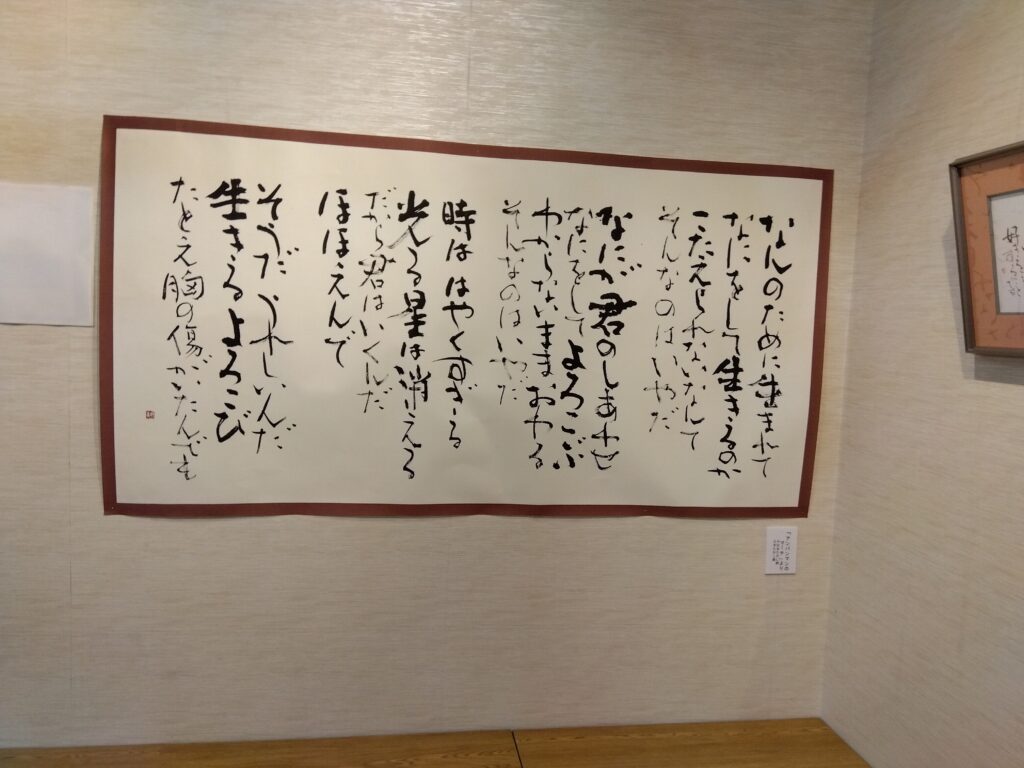 なんのために生まれて
なにをして生きるのか
こたえられないなんて
そんなのはいやだ
なにが君のしあわせ
なにをしてよろこぶ
わからないままおわる
そんなのはいやだ
時は はやくすぎる
光る星は消える
だから君はいくんだ
ほほえんで
そうだ うれしいんだ
生きるよろこび
たとえ胸の傷がいたんでも
「アンパンマンの
マーチ」より